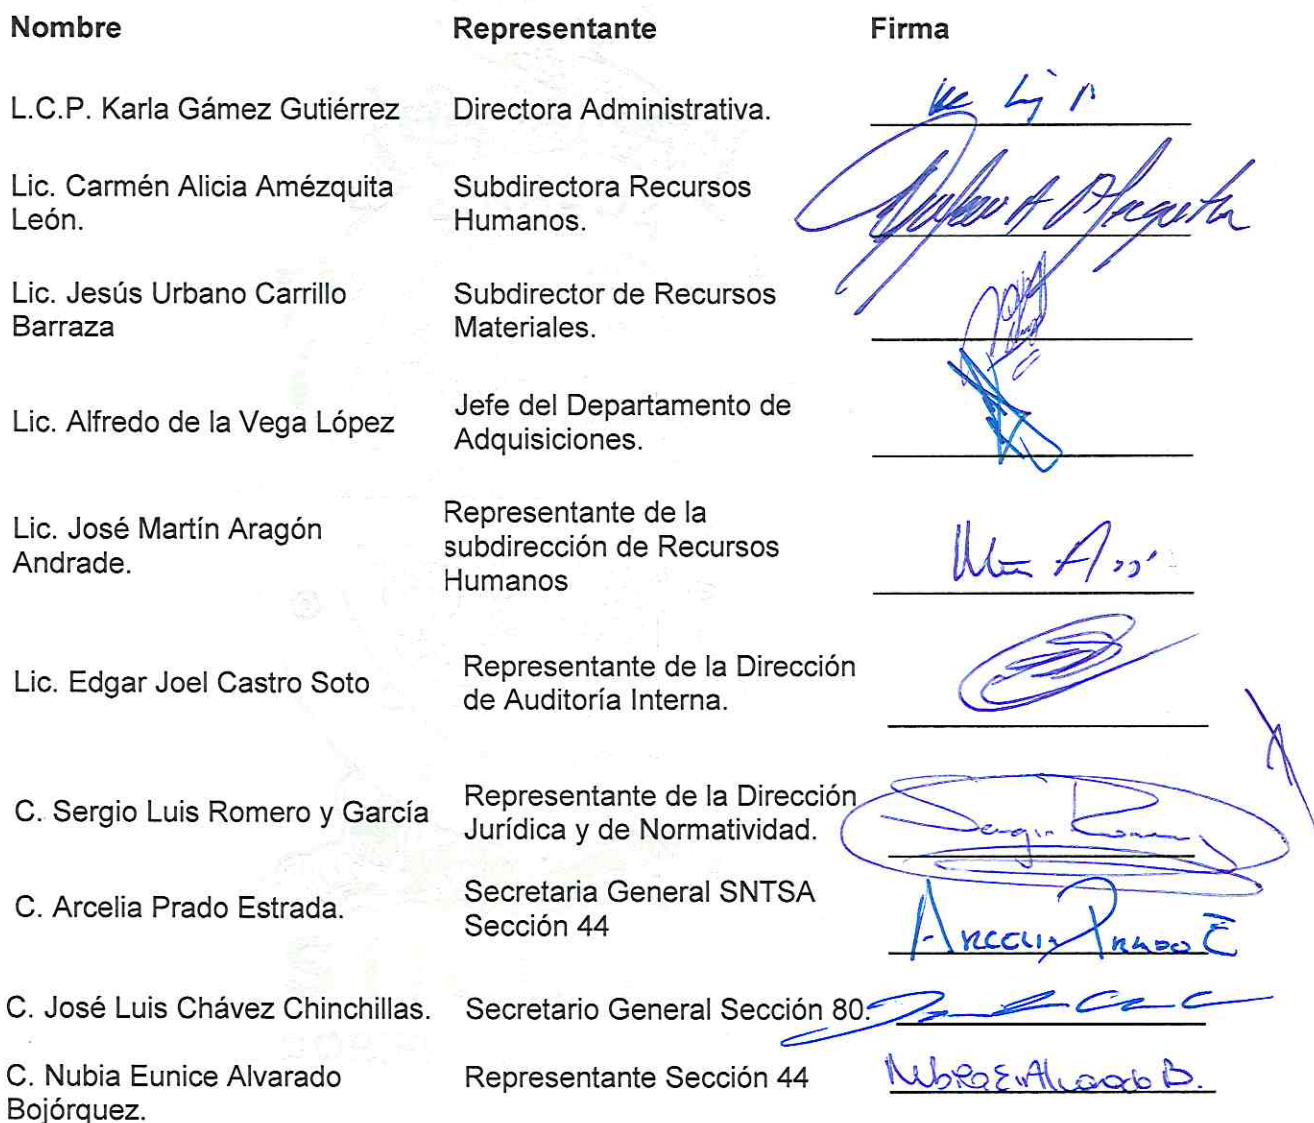 Nombre Representante Firma
L.C.P. Karla Gámez Gutiérrez Directora Administrativa.
Lic. Carmén Alicia Amézquita Subdirectora Recursos
León. Humanos.
Lic. Jesús Urbano Carrillo Subdirector de Recursos
Barraza Materiales.
Lic. Alfredo de la Vega López Jefe del Departamento de
Adquisiciones.
Lic. José Martín Aragón Representante de la
Andrade. subdirección de Recursos
Humanos
Lic. Edgar Joel Castro Soto Representante de la Dirección
de Auditoría Interna.
C. Sergio Luis Romero y García Representante de la Dirección
Jurídica y de Normatividad.
Sergio
C. Arcelia Prado Estrada. Secretaria General SNTSA
Sección 44
Arcelia Prado E
C. José Luis Chávez Chinchillas. Secretario General Sección 80.
C. Nubia Eunice Alvarado Representante Sección 44 Nubia E. Alvarado B.
Bojórquez.